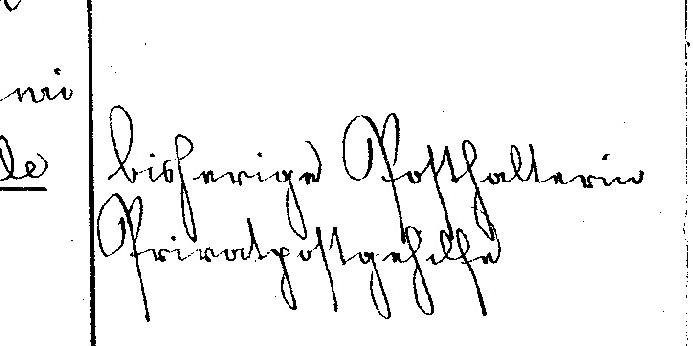 bisherige Posthalterin
Privatpostgehilfe